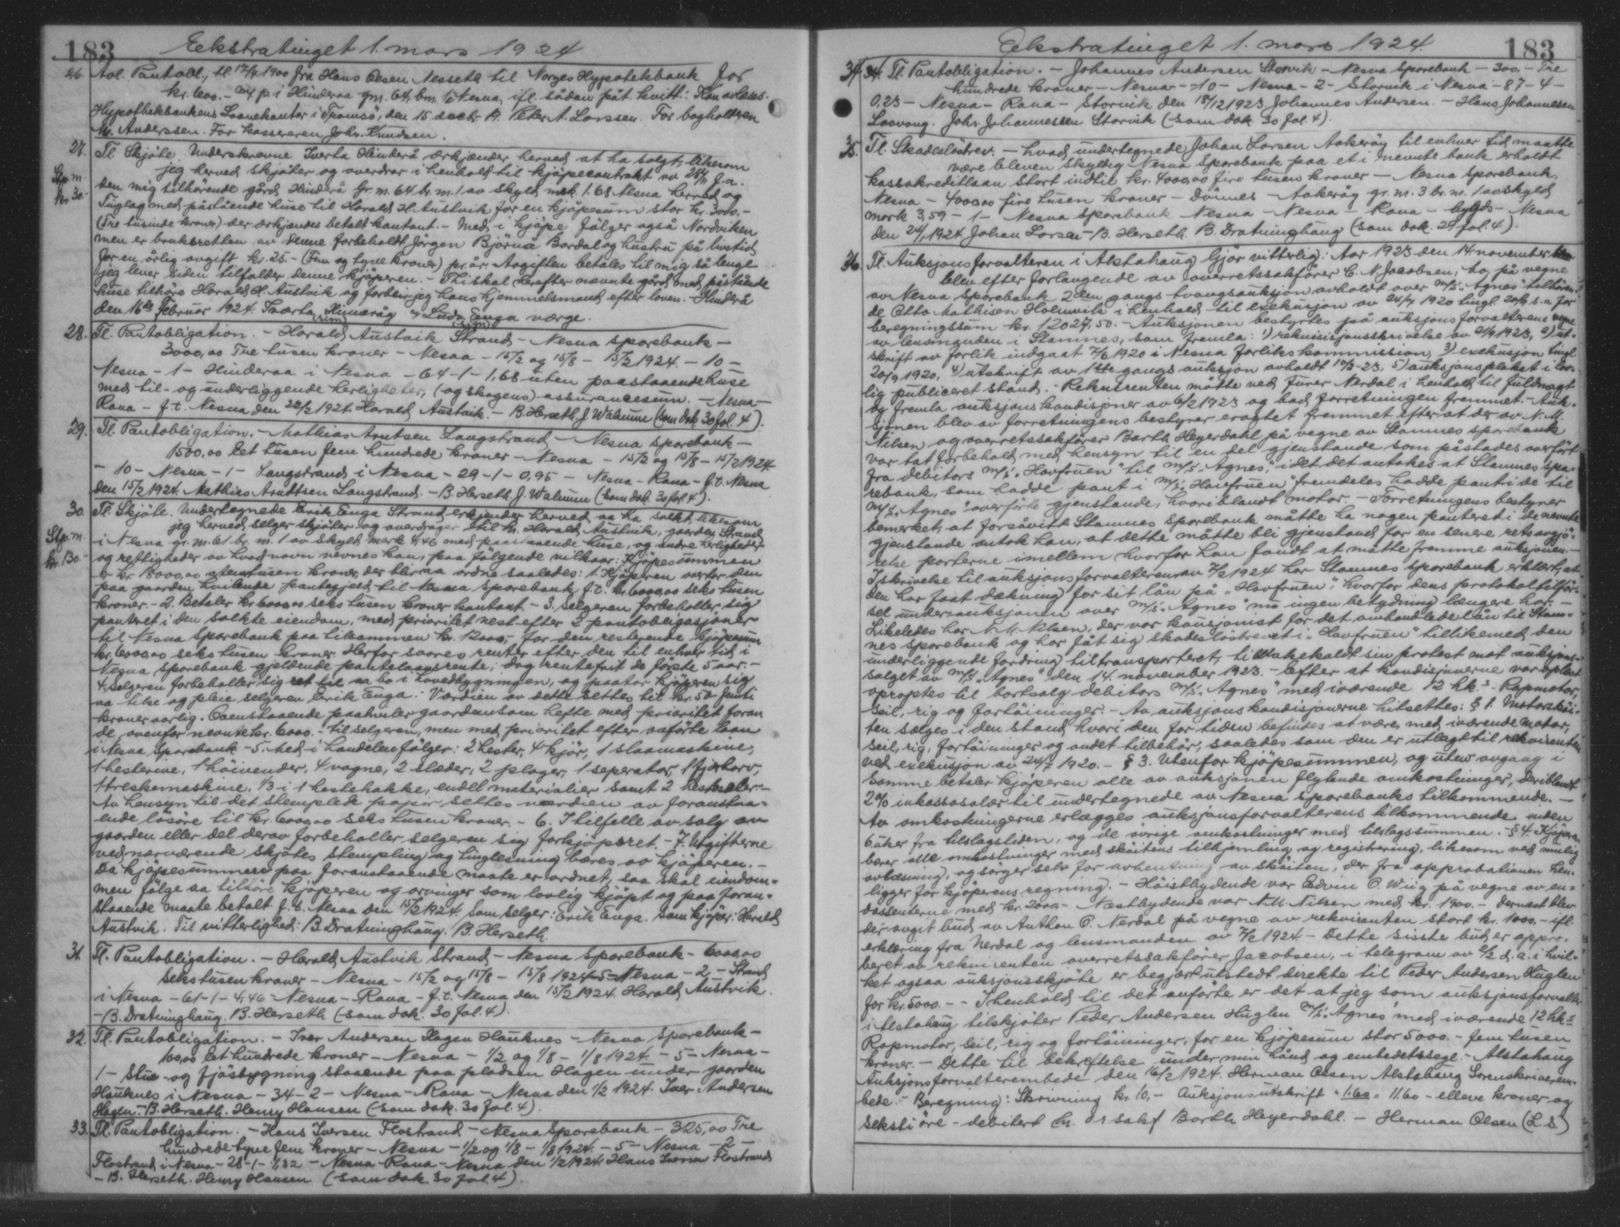 183 Eekstratinget 1. mars 1924
26. Avl. Pantobl., tl 17/9 1900 fra Hans Olsen Nesseth til Norges Hypotekbank for
kr. 600.- m/ p i Hinderaa gm. 64, bm. 6 Nesna, ifl. sådan påt. kvitt:
Hypothekbankens Laanekontor i Tromsø, den 15 decbr. Peter A. Larssen. For bogholderen
M. Anderssen. For kassereren Johs. Knudsen.
27. Tl Skjøte. Underskrevne Iverta Hinderå erkjænder herved at ha solgt, likesom
jeg herved skjøter og overdrar i henhold til kjøpecontrakt av f.a.
Stp. m.
kr. 30.-
den mig tilhørende gård Hinderå gr. m. 64 br. m. 1. av skyld mrk 1.68 Nesna herred og
Tinglag med påstående huse til Harald H. Austvik for en kjøpesum stor kr. 3000.-
(Tre tusinde kroner) der erkjændes betalt kontant. - Med i kjøpe følger også Nordviken
men er bruksretten av denne forbeholdt Jørgen Bjørnå Bordal og hustru på livstid
for en årlig avgift kr. 25.- (Fem og tyve kroner) pr. år. Avgiften betales til mig så længe
jeg lever siden tilfalder denne kjøperen. - Thi skal herefter nævnte gård med påstående
huse tilhøre Harald H. Austvik og forblir jeg hans hjemmelsmand efter loven. - Hinderå
den 16de Februar 1924. Iverta Hinderåg Enga værge.
28. Tl. Pantobligation. - Harald Austvik Strand - Nesna sparebank -
3000,00 Tre tusen kroner - Nesna - 15/2 og 15/8 - 15/2 1924 - 10 -
Nesna - 1 - Hinderaa i Nesna - 64 - 1 - 1,68 uten paastaaende huse
med til- og underliggende herligheter, (og skogens) assurancesum. - Nesna -
Rana - f.t. Nesna den 22/2 1924. Harald Austvik. - B. Herseth J. Walnum (som dok. 30 fol. 4).
29. Tl. Pantobligation. - Mathias Arntsen Langstrand - Nesna sparebank -
1500.00 Et tusen fem hundrede kroner - Nesna - 15/2 og 15/8 - 15/2 1924
- 10 - Nesna - 1 - Langstrand i Nesna - 29 - 1 - 0,95 - Nesna - Rana - f.t. Nesna
den 15/2 1924. Mathias Arntsen Langstrand. - B. Herseth J. Walnum (som dok. 30 fol. 4).
30. Tl. Skjøte. Undertegnede Erik Enga Strand erkjender herved at ha solgt, likesom
jeg herved selger skjøter og overdrager til hr. Harald Austvik, gaarden Strand
Stp. m.
kr. 130.-
i Nesna gr. m. 61 br. m. 1 av skyld mark 4,46 med paastaaende huse, og andre herligheder
og rettigheder av hvad navn nevnes kan, paa følgende vilkaar: Kjøpesummen
er kr. 18000,00 tusen kroner, der bliver ordne saaledes: 1. Kjøperen overtar den
paa gaarden hvilende pantegjeld til Nesna sparebank f.t. kr. 6000.00 seks tusen
kroner. - 2. Betaler kr. 6000.00 seks tusen kroner kontant. - 3. selgeren forbeholder sig
panteret i den solkte eiendom, med prioritet nest efter 2 pantobligasjoner
til Nesna Sparebank paa tilsammen kr. 12000,- for den resterende kjøpesum
kr. 6000.00 seks tusen kroner. Herfor svares renter efter den til enhver tid i
Nesna sparebank gjeldende pantelaansrente, dog rentefrit de første 5 aar. -
4. Selgeren forbeholder sig ret til aa bo i hovedbygningen, og paatar kjøperen sig
aa stse og pleie selgeren Erik Enga. Værdien av dette settes til kr. 50 femti
kroner aarlig. Ovenstaaende paahviler gaarden som hefte med prioritet foran
de ovenfor nevnte kr. 6000.- til selgeren, men med prioritet efter anførte laan
i Nesna Sparebank - 5. Med i handelen følger: 2 hester, 4 kjør, 1 slaamaskine,
1 hesterive, 1 høivender, 4 vogne, 2 slæder, 2 ploger, 1 seperator,
1 treskemaskine, 13 i 1 hestehakke, endel materialier samt 2 hesteseler. -
Av hensyn til det stemplede papir, settes værdien av foranstaa-
ende løsøre til kr. 6000,00 seks tusen kroner. - 6. I tilfelle av salg av
gaarden eller del derav forbeholder selgeren sig forkjøpsret. - 7. Utgifterne
ved nærværende skjøtes stempling og tinglesning bæres av kjøperen. -
Da kjøpesummen paa foranstaaende maate er ordnet, saa skal eiendom-
men følge aa tilhøre kjøperen og arvinger som lovlig kjøpt og paa foran-
staaende maate betalt f.t. Nesna den 15/2 1924. Som selger: Erik Enga. Som kjøper: Harald
Austvik. Til vitterlighed: B. Dratninghaug. B. Herseth.
31. Tl. Pantobligation. - Harald Austvik Strand - Nesna Sparebank - 6000,00
Seks tusen kroner - Nesna - 15/2 og 15/8 - 15/2 1924 - 5 - Nesna - 2 - Strand
i Nesna - 61 - 1 - 4,46 - Nesna - Rana - f.t. Nesna den 15/2 1924. Harald Austvik.
- B. Dratninghaug. B. Herseth (som dok. 30 fol. 4).
32. Tl. Pantobligation. - Iver Andersen Hagen Hauknes - Nesna Sparebank -
100,00 Et hundrede kroner - Nesna - 1/2 og 1/8 - 1/2 1924 - 5 - Nesna -
1 - Stue- og fjøsbygning staaende paa pladsen Hagen under gaarden
Hauknes i Nesna - 34 - 2 - Nesna - Rana - Nesna den 1/2 1924. Iver Andersen
Hagen. - B. Herseth. Henry Hansen (som dok. 30 fol. 4).
33. Tl. Pantobligation. - Hans Iversen Flostrand - Nesna Sparebank - 325,00 Tre
hundrede tyve fem kroner - Nesna - 1/2 og 1/8 - 1/2 1924 - 5 - Nesna - 2 -
Flostrand i Nesna - 28 - 1 - 1,32 - Nesna - Rana - Nesna den 1/2 1924. Hans Iversen Flostrand
- B. Herseth. Henry Hansen (som dok. 30 fol. 4).
Eekstratinget 1. mars 1924 183
34. Tl. Pantobligation. - Johannes Andersen Storvik - Nesna Sparebank - 300.- Tre
hundrede kroner - Nesna - 10 - Nesna - 2 - Storvik i Nesna - 87 - 4 -
0,23 - Nesna - Rana - Storvik den 18/12 1923 Johannes Andersen. - Hans Johannesen
Laavong. Johs. Johannessen Storvik (som dok. 30 fol. 4).
35. Tl. Skadesløsbrev. - Hvad undertegnede Johan Larsen Aakerøy til enhver tid maatte
være bleven skyldig Nesna Sparebank paa et i nevnte bank erholdt
kassakreditlaan stort indtil kr. 4000,00 fire tusen kroner - Nesna Sparebank,
Nesna - 4000.00 fire tusen kroner - Dønnes - Aakerøy gr. nr. 3 br. nr. 1 av skyld
mark 3,59 - 1 - Nesna sparebank Nesna - Nesna - Rana - bygds - Nesna
den 24/1 1924 Johan Larsen - B. Herseth. B. Dratninghaug (som dok. 29 fol. 4).
36. Tl. Auksjonsforvalteren i Alstahaug Gjør vitterlig: Aar 1923 den 14 november
blev efter forlangende av overretssakfører C. N. Jacobsen, Mo, på vegne
av Nesna Sparebank 2den gangs tvangsauksjon avholdt over m/s. "Agnes" tilhøren-
de Otto Mathisen Holmvik i henhold til exekusjon av 24/7 1920 tingl. 20/9 s.a. for
beregningssum kr. 12027.50. - Auksjonen bestyrtes på auksjonsforvalterens vegne
av lensmanden i Stamnes, som fremla: 1) rekvisisjonsskrivelse av 2/6 1923, 2) ut-
skrift av forlik indgaat 7/6 1920 i Nesna Forlikskommission, 3) exekusjon tingl.
20/9 1920, 4) utskrift av 1ste gangs auksjon avholdt 10/8-23, 5) auksjonsplakat i lov-
lig publiceret stand. - Rekvirenten møtte ved Fører Nerdal i henhold til fuldmagt
og fremla auksjonskondisjoner av 6/2 1923 og bad forretningen fremmet. Auk-
sjonen blev av forretningens bestyrer eragtet fremmet efter at der av N. M.
Nilsen og overretssakfører Barth Heyerdahl på vegne av Stamnes sparebank
var tat forbehold med hensyn til en del gjenstande som påstodes overført
fra debitors m/s. "Havfruen" til m/s. Agnes, idet det antokes at Stamnes Spa-
rebank, som hadde pant i m/s. "Havfruen" fremdeles hadde panti de til
m/s. Agnes overførte gjenstande, hvoriblandt motor. - Forretningens bestyrer
bemerket, at forsåvidt Stamnes Sparebank måtte ha nogen panteret i de nevnte
gjenstande antok han, at dette måtte bli gjenstand for en senere retsavgjø-
relse parterne imellem hvorfor han fandt at måtte fremme auksjonen.
I skrivelse til auksjonsforvalteren av 7/2 1924 har Stamnes sparebank erklært, at
den har faat dækning for sit lån på "Havfruen" hvorfor dens protokoltilfør-
sel under auksjonen over m/s. Agnes nu ingen betydning længere har. -
Likeledes har N. M. Nilsen, der var kausjonist for det omhandlede lån til Stam-
nes sparebank og har fåt sig skadesløsbrevet i "Havfruen" tillikemed den
underliggende fordring tiltransporteret, tilbakekaldt sin protest mot auksjons-
salget av m/s. Agnes den 14. november 1923. - Efter at kondisjonerne var oplæst
opropes til bortsalg debitors m/s. Agnes med iværende 12 hk.s Rapmotor,
seil, rig og fortøininger. - Av auksjonskondisjonerne hitsettes: § 1. Motorskøi-
ten selges i den stand hvori den for tiden befindes at være, med iværende motor,
seil, rig, fortøininger og andet tilbehør, saaledes som den er utlagt til rekvirenten
ved exekusjon av 24/7 1920. - § 3. Utenfor kjøpesummen, og uten avgang i
samme betaler kjøperen alle av auksjonen flytende omkostninger, deriblandt
2% inkassosalær til undertegnede av Nesna Sparebanks tilkommende. -
Av omkostningerne erlægges auksjonsforvalterens tilkommende inden
6 uker fra tilslagstiden, og de øvrige omkostninger med tilslagssummen. - § 4. Kjøperen
bærer alle omkostninger med skøitens tilhjemling og registrering, likesom ved mulig
avlæsning, og sørger selv for avhentning av skøiten, der fra approbationen hen-
ligger for kjøperens regning. - Høistbydende var Edvin O. Wiig på vegne av en-
dossenterne med kr. 2000.- Næstbydende var N. M. Nilsen med kr. 1900.- dernæst blev
der avgit bud av Anthon P. Nerdal på vegne av rekvirenten stort kr. 1000.- ifl.
erklæring fra Nerdal og lensmanden av 7/2 1924 - Dette sisste bud er appro-
beret av rekvirenten overretssakfører Jacobsen, i telegram av 2/2 d.a. i hvil-
ket ogsaa auksjonsskjøte er begjært utstedt direkte til Peder Andersen Huglen
for kr. 5000.- - I henhold til det anførte er det at jeg som auksjonsforvalter
i Alstahaug tilskjøter Peder Andersen Huglen m/s. Agnes med iværende 12 hk.s
Rapmotor, seil, rig og fortøininger, for en kjøpesum stor 5000.- fem tusen
kroner. - Dette til bekreftelse under min hånd og embedssegl. - Alstahaug
Auksjonsforvalterembede den 16/2 1924. Herman Olsen Alstahaug Sorenskriverem-
bede. - Beregning: Skrivning kr. 10,- Auksjonsutskrift " 1.60 = 11.60 - elleve kroner og
seksti øre - debitert hr. o.r.sakf Barth Heyerdahl. - Herman Olsen (L.S.)